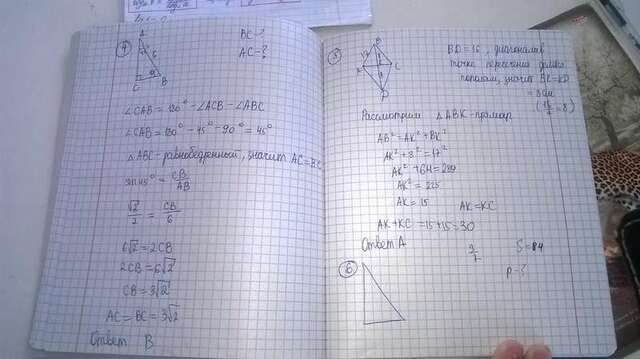 4
A
6
C
B
BC-?
AC-?
∠CAB = 180° - ∠ACB - ∠ABC
∠CAB = 180° - 45° - 90° = 45°
△ABC - равнобедренный, значит AC = BC
sin45° = CB/AB
√2/2 = CB/6
6√2 = 2CB
2CB = 6√2
CB = 3√2
AC = BC = 3√2
Ответ B
5
B
17
A
C
D
BD = 16, диагонали
точка пересечения делит
пополам, значит BK = KD
= 8см
(16/2 = 8)
Рассмотрим △ABK - прямоуг
AB² = AK² + BK²
AK² + 8² = 17²
AK² + 64 = 289
AK² = 225
AK = 15 AK = KC
AK + KC = 15 + 15 = 30
Ответ A
6
S = 84
P - ?